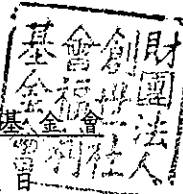 財團法人
創世社
會福利
基金會
基金會